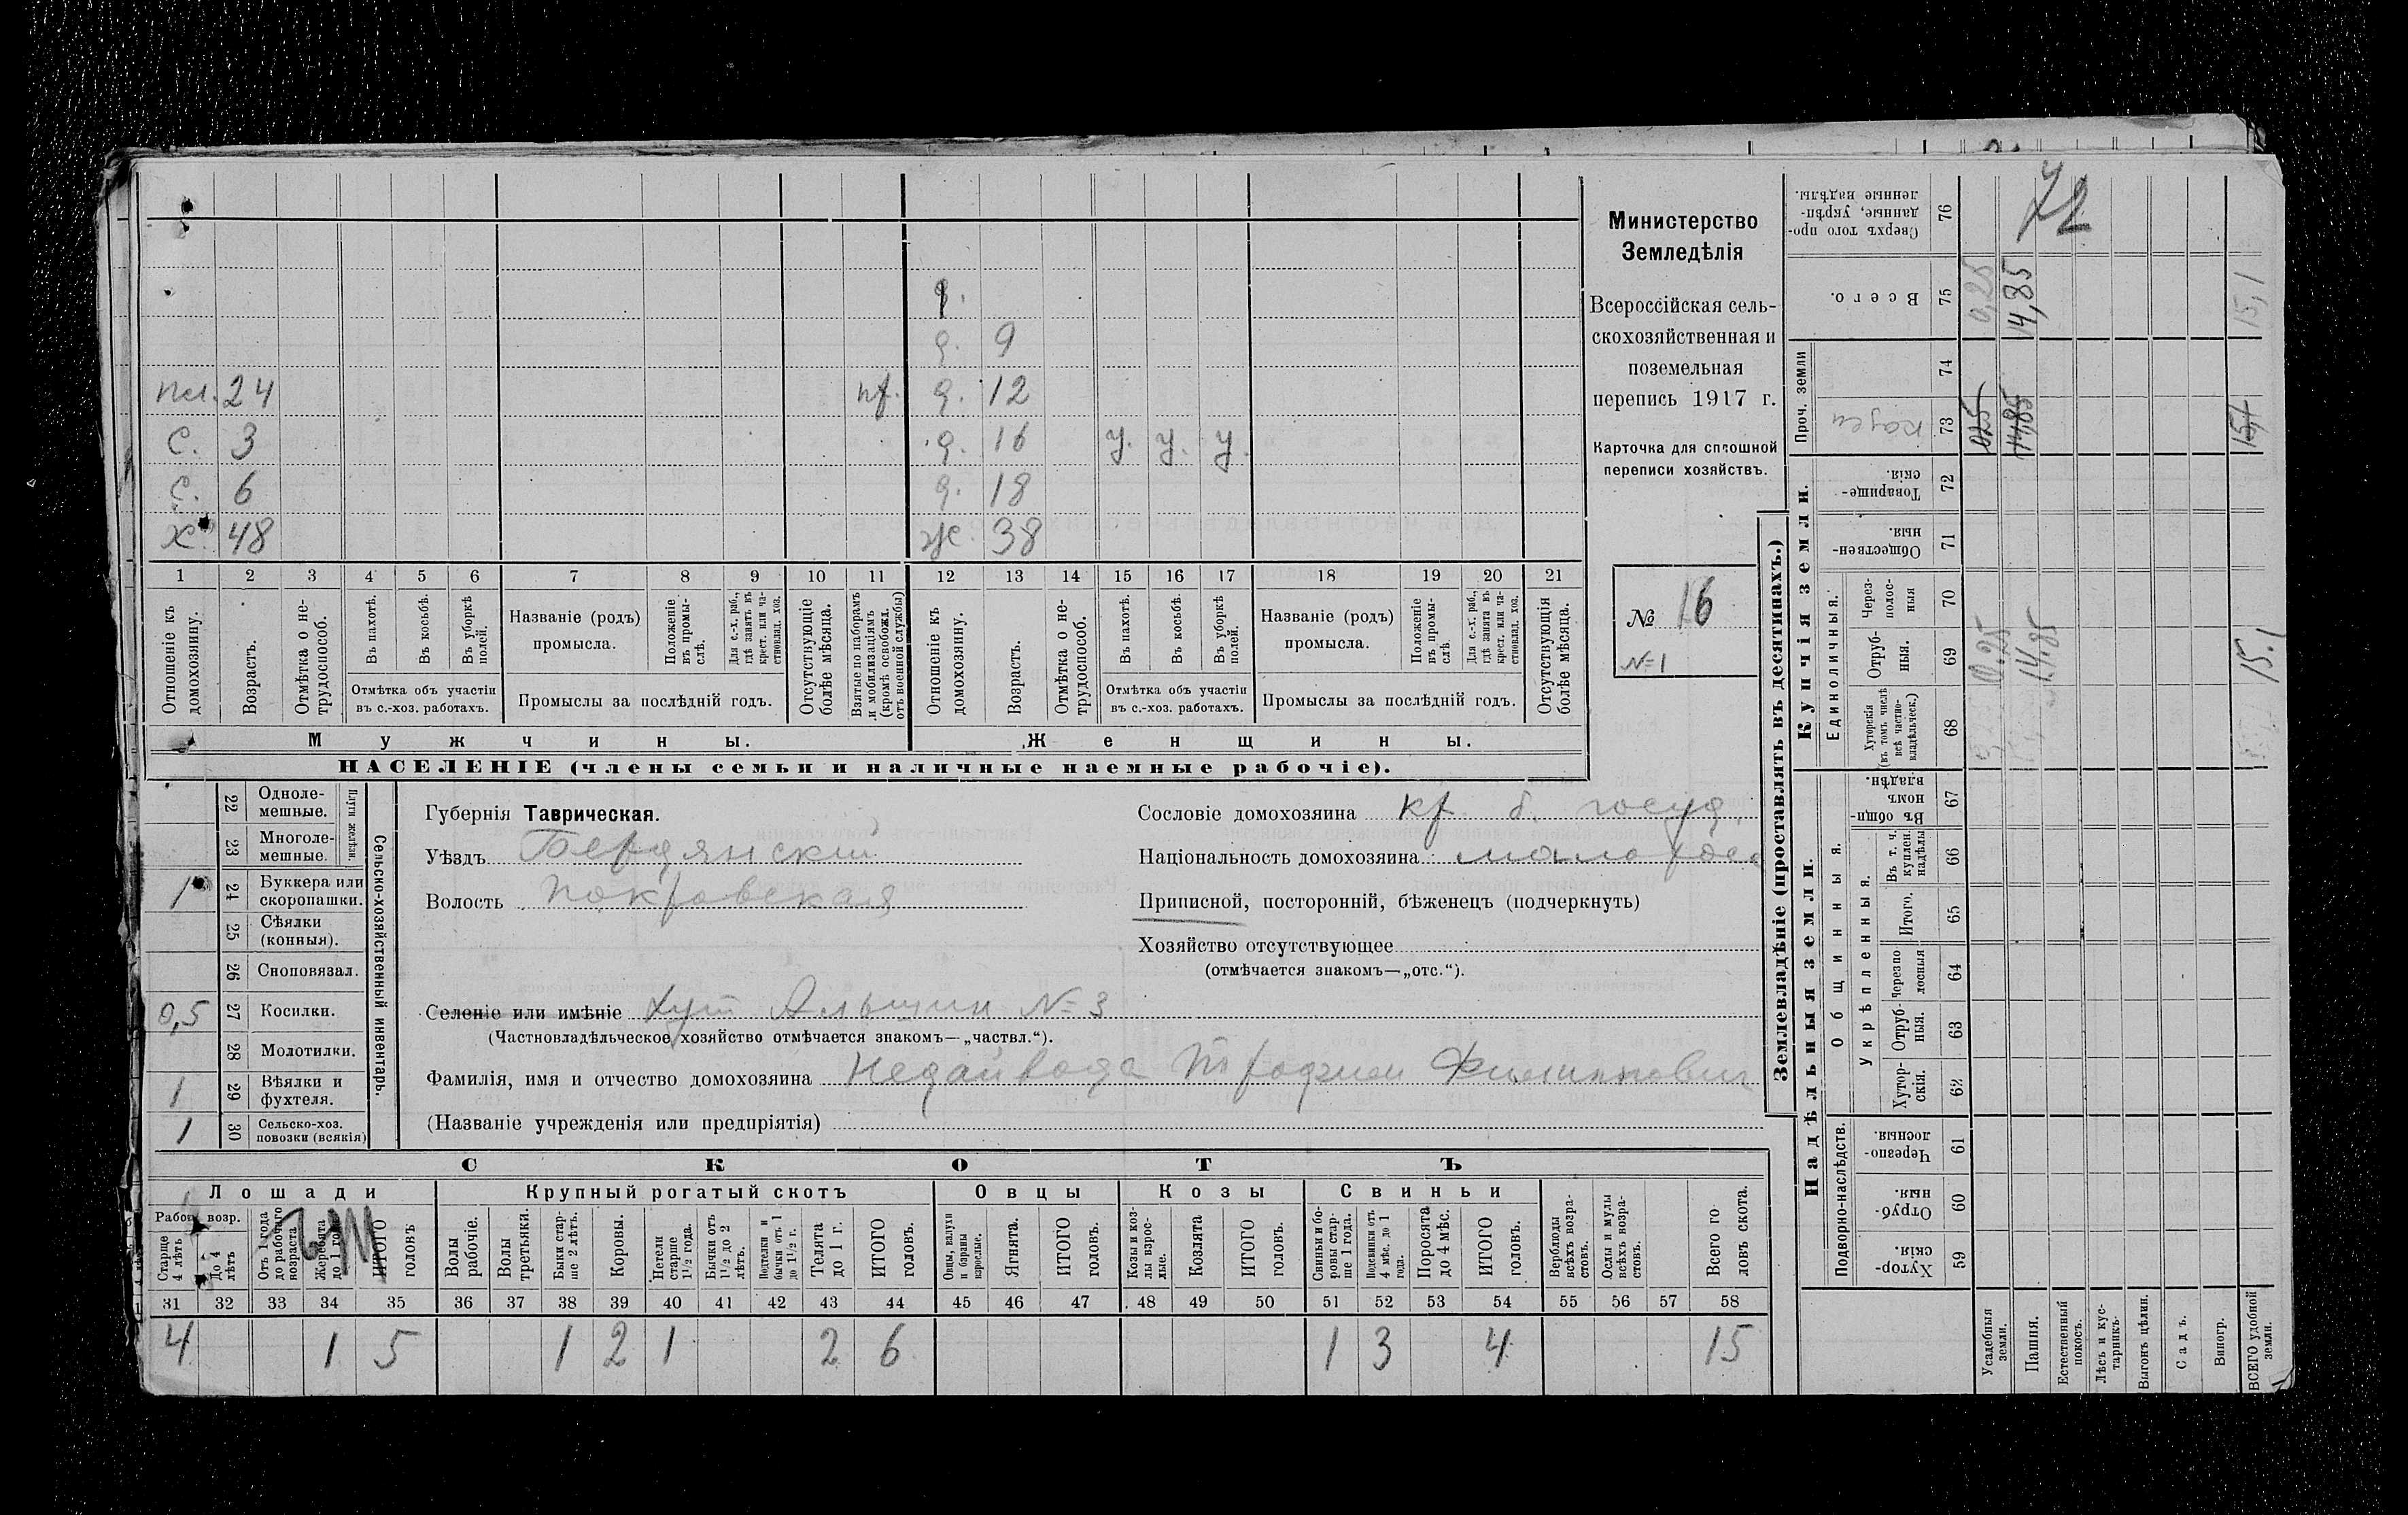 д.
д. 9
пл. 24 пд. д. 12
С. 3 д. 16 у. у. у.
С. 6 д. 18
Х. 48 Ж. 38
1 2 3 4 5 6 7 8 9 10 11 12 13 14 15 16 17 18 19 20 21
Отношеніе къ домохозяину.
Возрастъ.
Отмѣтка о не-трудоспособ.
Въ пахотѣ.
Въ косьбѣ.
Въ уборкѣ полей.
Отмѣтка объ участіи
въ с.-хоз. работахъ.
Названіе (родъ)
промысла.
Положеніе въ промы-слѣ.
Для с.-х. раб., гдѣ занятъ въ крест. или ча-стновлад. хоз.
Промыслы за послѣдній годъ.
Отсутствующіе болѣе мѣсяца.
Взятые по наборамъ и мобилизаціямъ (кромѣ освобожд. отъ военной службы)
Отношеніе къ домохозяину.
Возрастъ.
Отмѣтка о не-трудоспособ.
Въ пахотѣ.
Въ косьбѣ.
Въ уборкѣ полей.
Отмѣтка объ участіи
въ с.-хоз. работахъ.
Названіе (родъ)
промысла.
Положеніе въ промы-слѣ
Для с.-х. раб., гдѣ занята въ крест. или ча-стновлад. хоз.
Промыслы за послѣдній годъ.
Отсутствующія болѣе мѣсяца.
Мужчины. Женщины.
НАСЕЛЕНІЕ (члены семьи и наличные наемные рабочіе).
Министерство
Земледѣлія
Всероссійская сель-
скохозяйственная и
поземельная
перепись 1917 г.
Карточка для сплошной
переписи хозяйствъ.
№ 16
№ 1
22 Одноле-мешные.
23 Многоле-мешные.
Плуги желѣзн.
1 24 Буккера или скоропашки.
25 Сѣялки (конныя).
26 Сноповязал.
0,5 27 Косилки.
28 Молотилки.
1 29 Вѣялки и фухтеля.
1 30 Сельско-хоз. повозки (всякія)
Сельско-хозяйственный инвентарь.
Губернія Таврическая.
Уѣздъ Бердянскій
Волость Покровская
Сословіе домохозяина кр. б. госуд.
Національность домохозяина малоросс
Приписной, посторонній, бѣженецъ (подчеркнуть)
Хозяйство отсутствующее
(отмѣчается знакомъ—„отс.“).
Селеніе или имѣніе Хут Альшин № 3
(Частновладѣльческое хозяйство отмѣчается знакомъ—„частвл.“).
Фамилія, имя и отчество домохозяина Недайвода Трофим Филиппович
(Названіе учрежденія или предпріятія)
СКОТЪ
Лошади Крупный рогатый скотъ Овцы Козы Свиньи
Рабоч. возр.
Старше 4 лѣтъ
До 4 лѣтъ
Отъ 1 года до рабочаго возраста
Жеребята до 1 года
ИТОГО головъ
Волы рабочіе.
Волы третьяки.
Быки стар-ше 2 лѣтъ.
Коровы.
Нетели старше 1 1/2 года.
Бычки отъ 1 1/2 до 2 лѣтъ.
Подтелки и бычки отъ 1 до 1 1/2 г.
Телята до 1 г.
ИТОГО головъ.
Овцы, валухи и бараны взрослые.
Ягнята.
ИТОГО головъ.
Козы и коз-лы взрос-лые.
Козлята
ИТОГО головъ.
Свиньи и бо-ровы стар-ше 1 года.
Подсвинки отъ 4 мѣс. до 1 года.
Поросята до 4 мѣс.
ИТОГО головъ.
Верблюды всѣхъ возра-стовъ.
Ослы и мулы всѣхъ возра-стовъ.
Всего го-ловъ скота.
31 32 33 34 35 36 37 38 39 40 41 42 43 44 45 46 47 48 49 50 51 52 53 54 55 56 57 58
4 1 5 1 2 1 2 6 1 3 4 15
Землевладѣніе (проставлять въ десятинахъ.)
Купчія земли.
Надѣльныя земли.
Сверхъ того про-данные, укрѣп-ленные надѣлы. 76
72
Всего. 75 0,25 14,85 15,1
Проч. земли
74
казен 73 0,25 14,85 15,1
Товарище-скія. 72
Обществен-ныя. 71
Единоличныя.
Через-полос-ныя 70
Отруб-ныя. 69 0.25 14.85 15.1
Хуторскія (въ томъ числѣ всѣ частно-владѣльческ.) 68
Общинныя.
Въ общи-номъ владѣн. 67
Укрѣпленныя.
Въ т. ч. куплен. надѣлы 66
Итого. 65
Черезпо лосныя 64
Отруб-ныя. 63
Хутор-скія. 62
Подворно-наслѣдств.
Черезпо-лосныя. 61
Отруб-ныя. 60
Хутор-скія. 59
Усадебныя земли.
Пашня.
Естественный покосъ.
Лѣсъ и кус-тарникъ.
Выгонъ цѣлин.
Садъ.
Виногр.
ВСЕГО удобной земли.